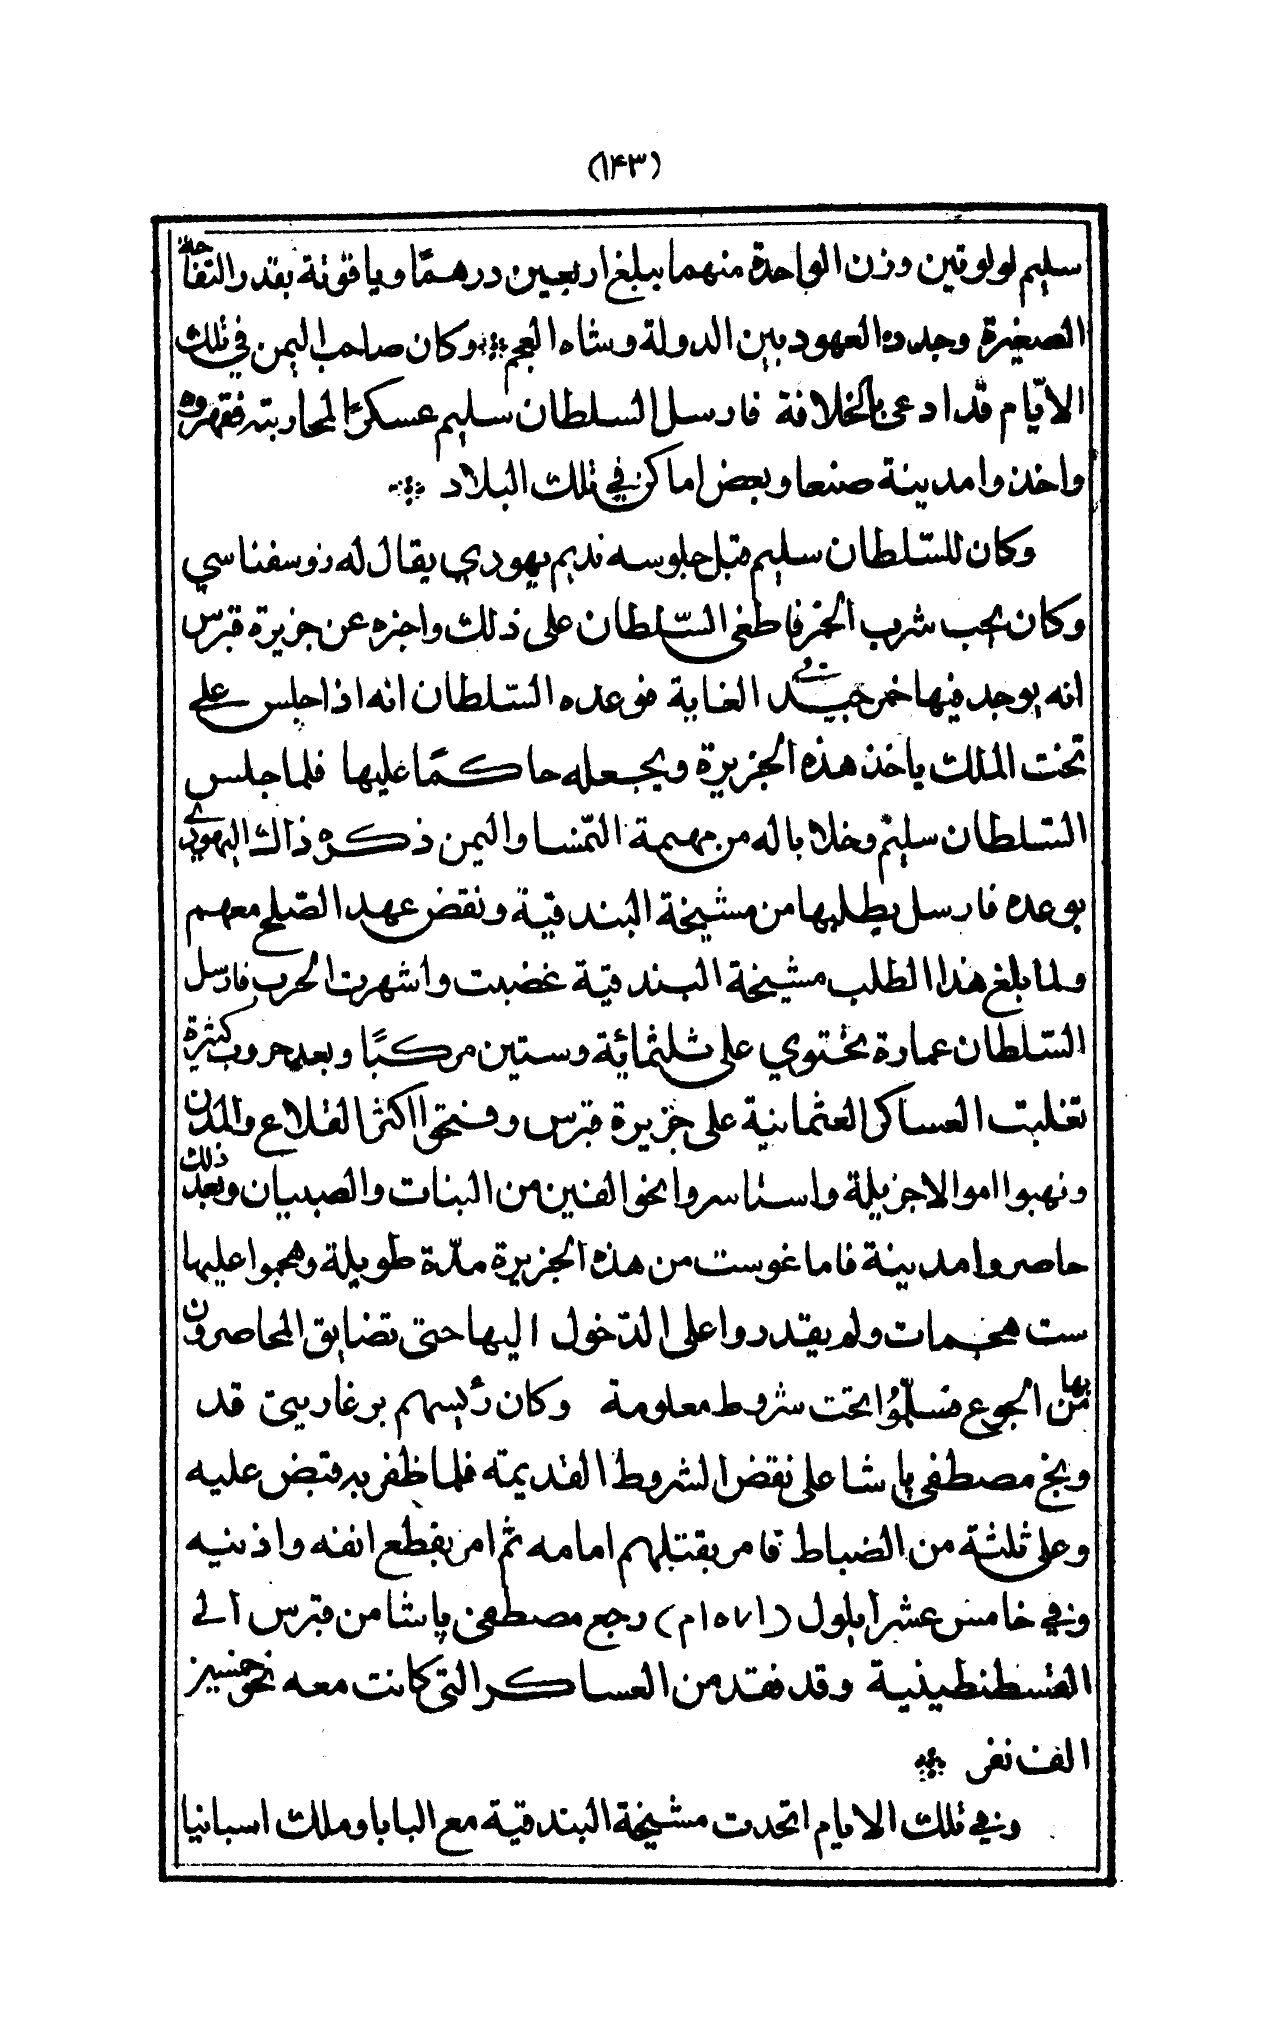 (١٤٣)
سليم لولوتين وزن الواحدة منهما يبلغ اربعين درهمًا وياقوتة بقدر التفاحة
الصغيرة وجددوا العهود بين الدولة وشاه العجم ❊ وكان صاحب اليمن في تلك
الايّام قد ادعى بالخلافة فارسل السلطان سليم عسكرًا لمحاربته فقهروه
واخذوا مدينة صنعا وبعض اماكن في تلك البلاد ❊
وكان للسّلطان سليم قبل جلوسه نديم يهودي يقال له زوسفناسي
وكان يحب شرب الخمر فاطغى السّلطان على ذلك واخبره عن جزيرة قبرس
انه يوجد فيها خمر جيد في الغاية فوعده السّلطان انه اذا جلس على
تخت الملك ياخذ هذه الجزيرة ويجعله حاكمًا عليها فلما جلس
السّلطان سليم وخلا باله من مهمة النّمسا واليمن ذكره ذاك اليهودي
بوعده فارسل يطلبها من مشيخة البندقية ونقض عهد الصّلح معهم
ولما بلغ هذا الطلب مشيخة البندقية غضبت واشهرت الحرب فارسل
السّلطان عمارة تحتوي على ثلثمائة وستين مركبًا وبعد حروب كثيرة
تغلبت العساكر العثمانية على جزيرة قبرس وفتحوا اكثر القلاع والمدن
ونهبوا اموالا جزيلة واستاسروا نحو الفين من البنات والصبيان وبعد ذلك
حاصروا مدينة فاماغوست من هذه الجزيرة مدّة طويلة وهجموا عليها
ست هجمات ولم يقدروا على الدّخول اليها حتى تضايق المحاصرون
بها من الجوع فسلّمُوا تحت شروط معلومة وكان رئيسهم برغاريتي قد
وبخ مصطفى پاشا على نقض الشروط القديمة فلما ظفر به قبض عليه
وعلى ثلثة من الضباط فامر بقتلهم امامه ثم امر بقطع انفه واذنيه
وفي خامس عشر ايلول (١٥٧١م) رجع مصطفى پاشا من قبرس الى
القسطنطينية وقد فقد من العساكر التي كانت معه نحو خمسين
الف نفر ❊
وفي تلك الايام اتحدت مشيخة البندقية مع البابا وملك اسبانيا